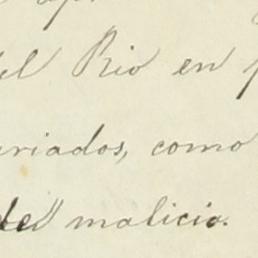 del Rio en
ariados, como
de malicia.